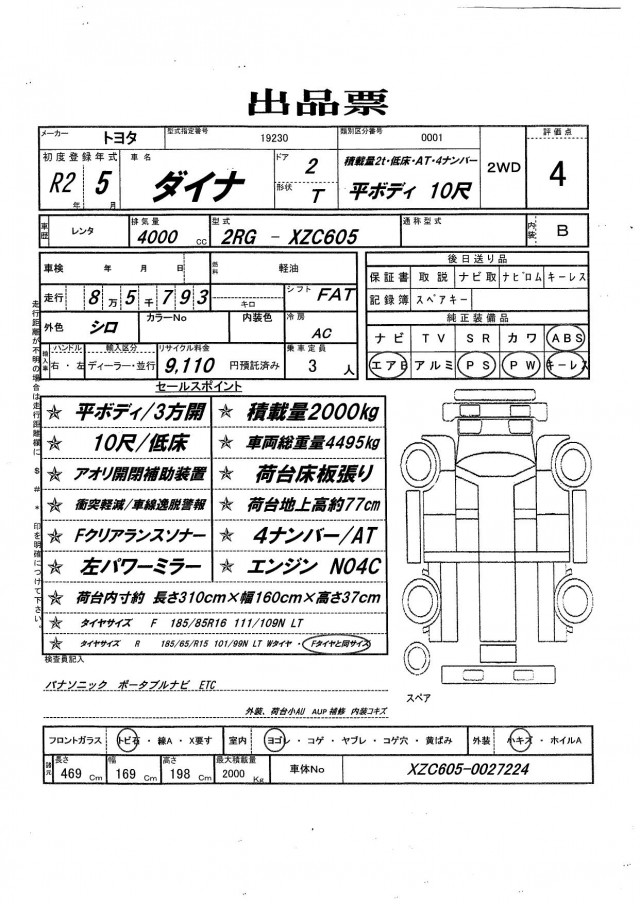 出品票
メーカー トヨタ 型式指定番号 19230 類別区分番号 0001 評価点
初度登録年式 車名 ドア 2 積載量2t・低床・AT・4ナンバー 2WD 4
R2年 5月 ダイナ 形状 T 平ボディ 10尺
車歴 レンタ 排気量 4000 cc 型式 2RG - XZC605 通称型式 内装 B
車検 年 月 日 燃料 軽油 後日送り品
保証書 取説 ナビ取 ナビロム キーレス
走行 8万5千793 キロ シフト FAT 記録簿 スペアキー
外色 シロ カラーNo 内装色 冷房 AC 純正装備品
ナビ TV SR カワ ABS
輸入車 ハンドル 右・左 輸入区分 ディーラー・並行 リサイクル料金 9,110 円預託済み 乗車定員 3 人 エアB アルミ PS PW キーレス
セールスポイント
平ボディ/3方開 積載量2000kg
10尺/低床 車両総重量4495kg
アオリ開閉補助装置 荷台床板張り
衝突軽減/車線逸脱警報 荷台地上高約77cm
Fクリアランスソナー 4ナンバー/AT
左パワーミラー エンジン N04C
荷台内寸約 長さ310cm×幅160cm×高さ37cm
タイヤサイズ F 185/85R16 111/109N LT
タイヤサイズ R 185/65/R15 101/99N LT Wタイヤ・Fタイヤと同サイズ
走行距離が不明の場合は走行距離欄に $ # * 印を明確につけて下さい。
検査員記入
パナソニック ポータブルナビ ETC
外装、荷台小AU AUP補修 内装コキズ
スペア
フロントガラス トビ石・線A・X要す 室内 ヨゴレ・コゲ・ヤブレ・コゲ穴・黄ばみ 外装 小キズ・ホイルA
諸元 長さ 469 Cm 幅 169 Cm 高さ 198 Cm 最大積載量 2000 Kg 車体No XZC605-0027224